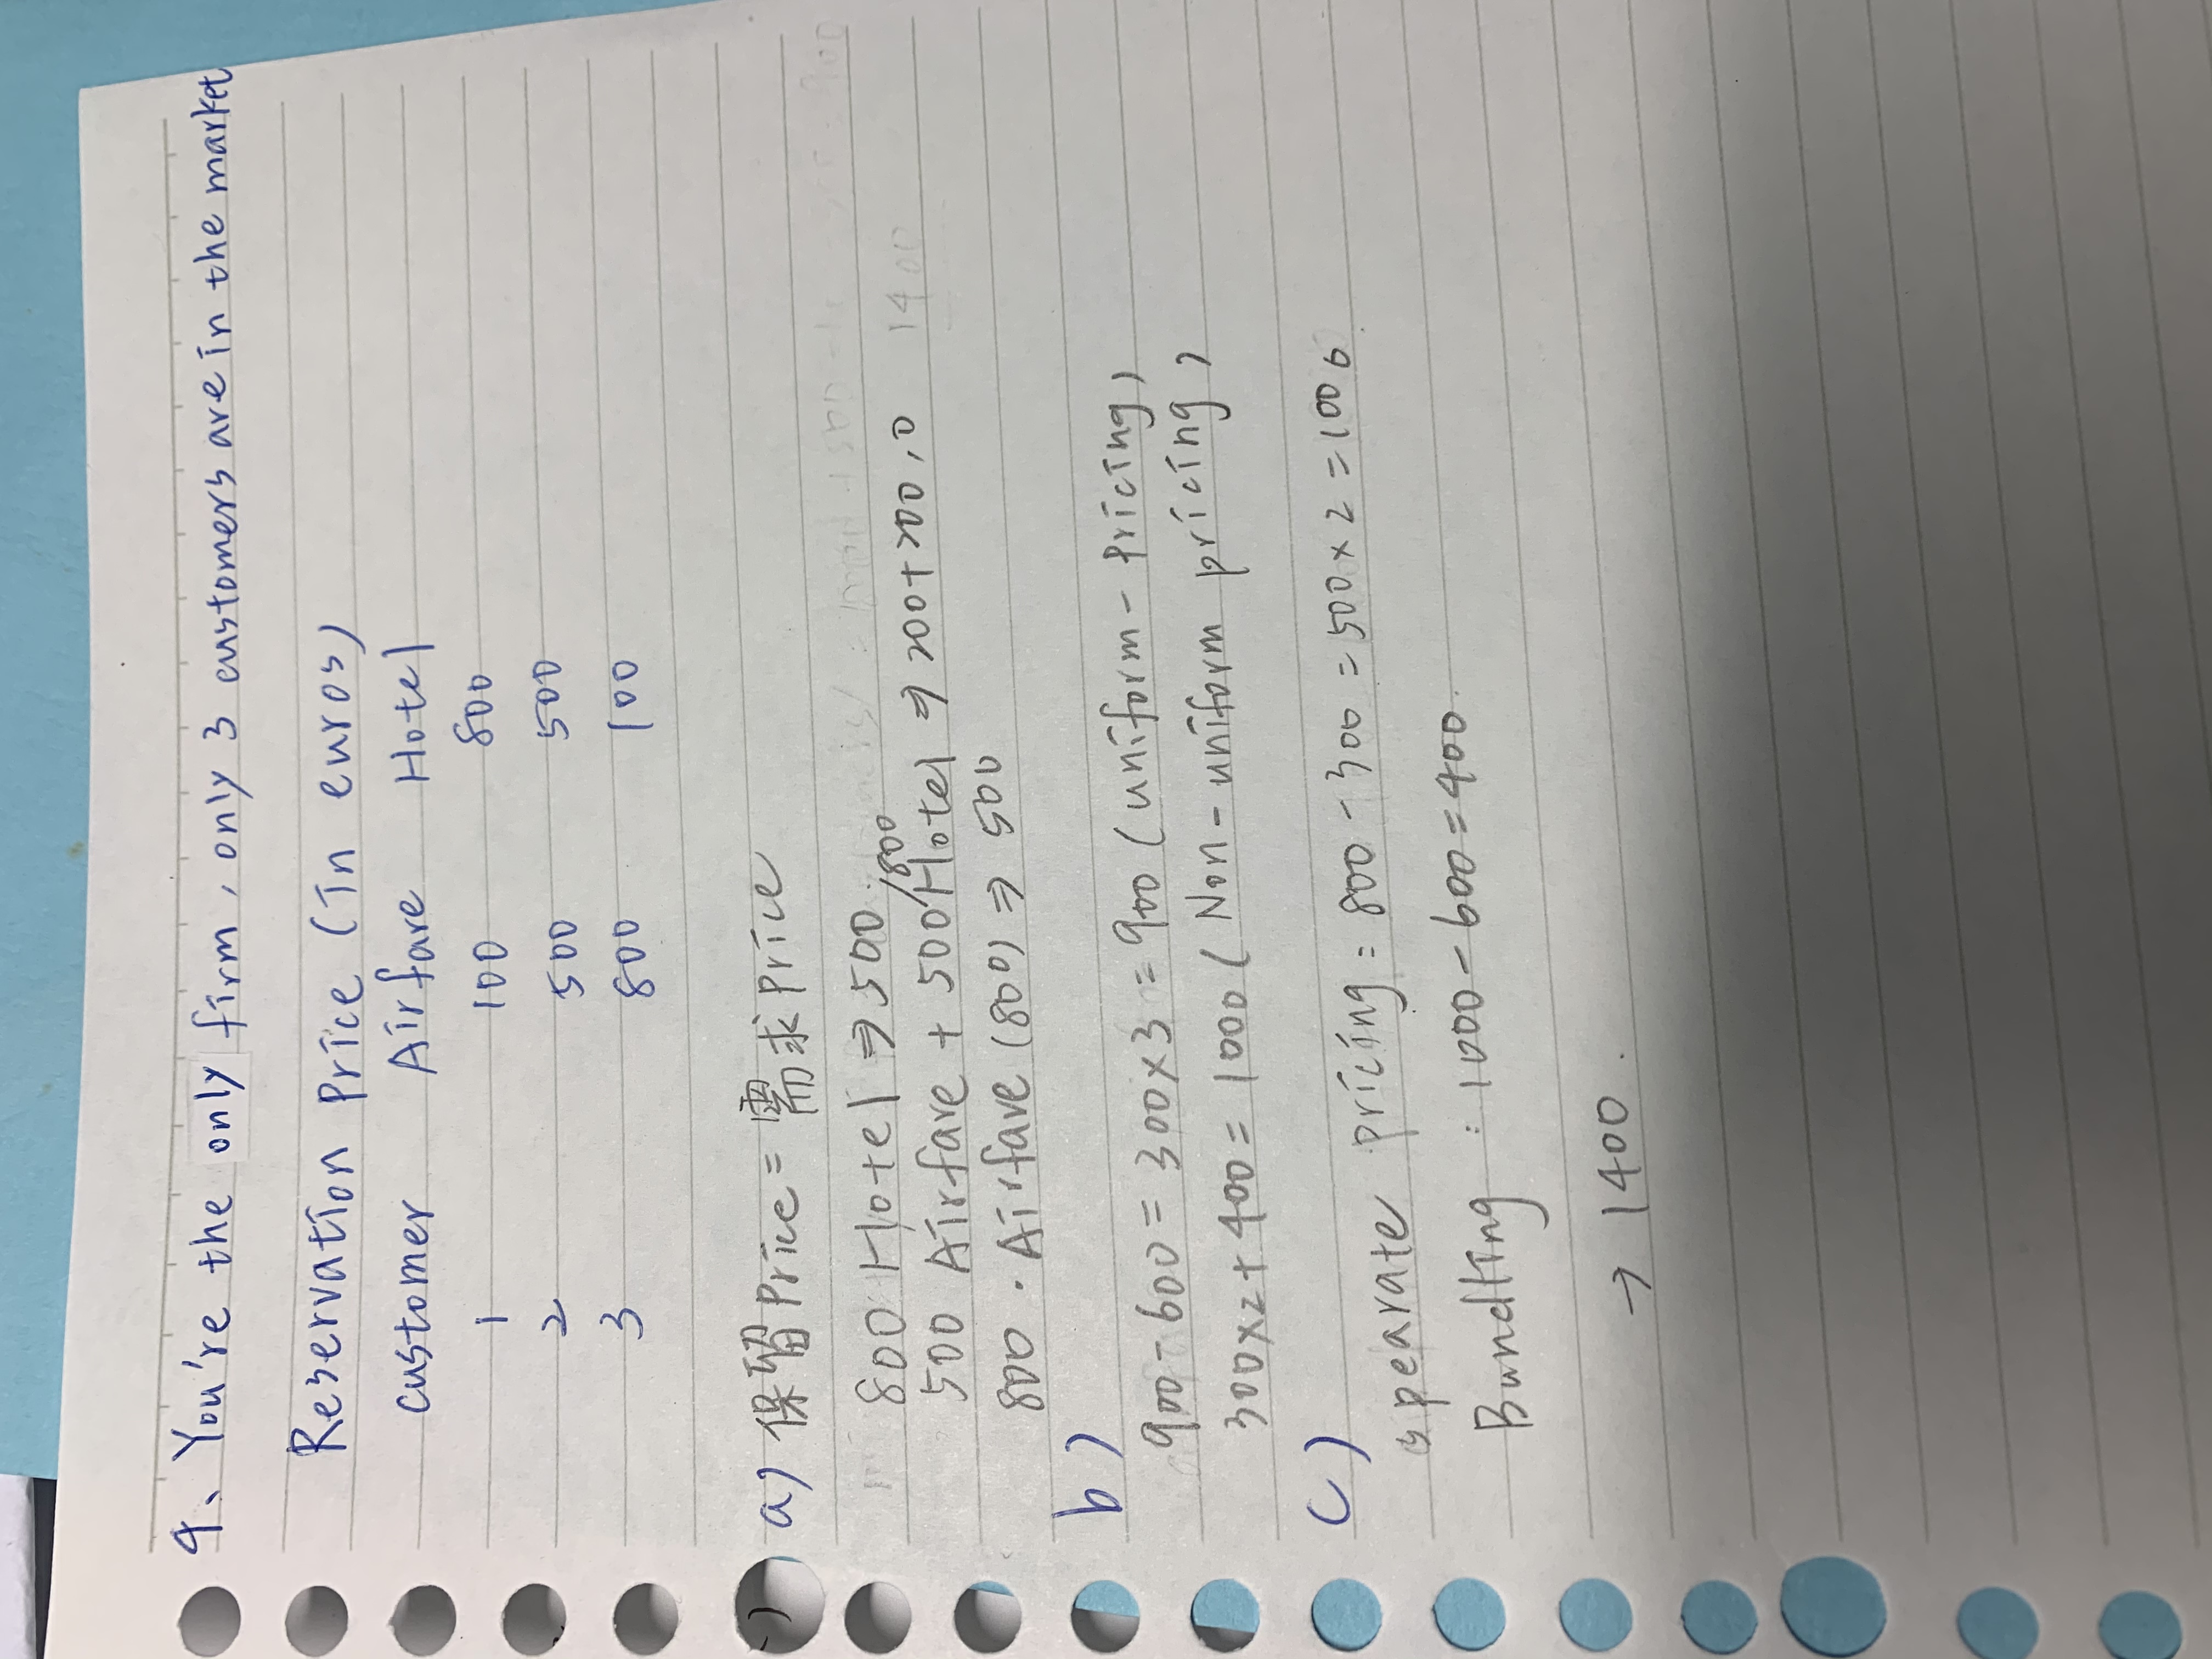 4、You're the only firm, only 3 customers are in the market
Reservation Price (in euros)
customer Airfare Hotel
1 100 800
2 500 500
3 800 100
a) 保留Price = 需求price
800 Hotel ⇒ 500
/800
500 Airfare + 500 Hotel ⇒ 200+200,0
800 · Airfare (800) ⇒ 500
b)
900-600 = 300×3 = 900 (uniform-Pricing)
300×2+400 = 1000 (Non-uniform pricing)
c)
spearate pricing: 800-300 = 500×2 = 1000
Bundling : 1000-600=400.
→ 1400.